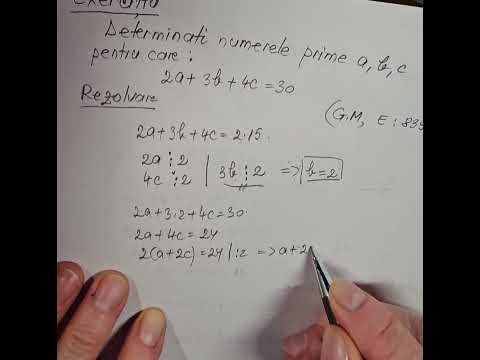 Exercițiu
Determinati numerele prime a, b, c
pentru care:
2a + 3b + 4c = 30
Rezolvare
(G.M, E: 835
2a + 3b + 4c = 2·15
2a ⋮ 2
4c ⋮ 2 | 3b ⋮ 2 => b = 2
2a + 3·2 + 4c = 30
2a + 4c = 24
2(a + 2c) = 24 | :2 => a + 2